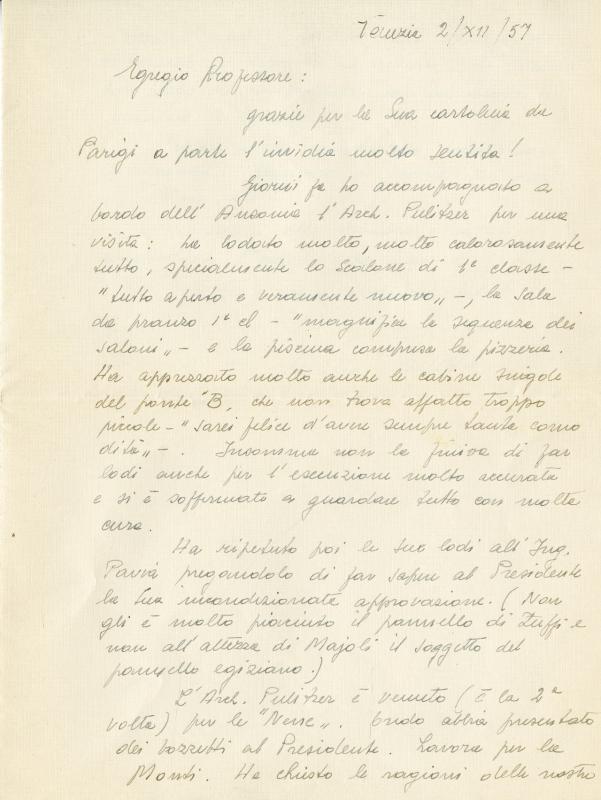 Venezia 2/XII/57
Egregio Professore:
grazie per la Sua cartolina da
Parigi a parte l'invidia molto sentita!
Giorni fa ho accompagnato a
bordo dell'Ausonia l'Arch. Pulitzer per una
visita: ha lodato molto, molto calorosamente
tutto, specialmente lo Scalone di 1ª classe -
"tutto aperto e veramente nuovo" -, la sala
da pranzo 1ª cl - "magnifica la sequenza dei
saloni" - e la piscina compresa la pizzeria.
Ha apprezzato molto anche le cabine singole
del ponte "B, che non trova affatto troppo
piccole - "sarei felice d'avere sempre tanta como
dità" - . Insomma non la finiva di far
lodi anche per l'esecuzione molto accurata
e si è soffermato a guardare tutto con molta
cura.
Ha ripetuto poi le sue lodi all'Ing.
Pavia pregandolo di far sapere al Presidente
la Sua incondizionata approvazione. (Non
gli è molto piaciuto il pannello di Zuffi e
non all'altezza di Majoli il soggetto del
pannello egiziano.)
L'Arch. Pulitzer è venuto (è la 2ª
volta) per le "Navi". Credo abbia presentato
dei bozzetti al Presidente. Lavora per la
Monti. Ha chiesto le ragioni della nostra